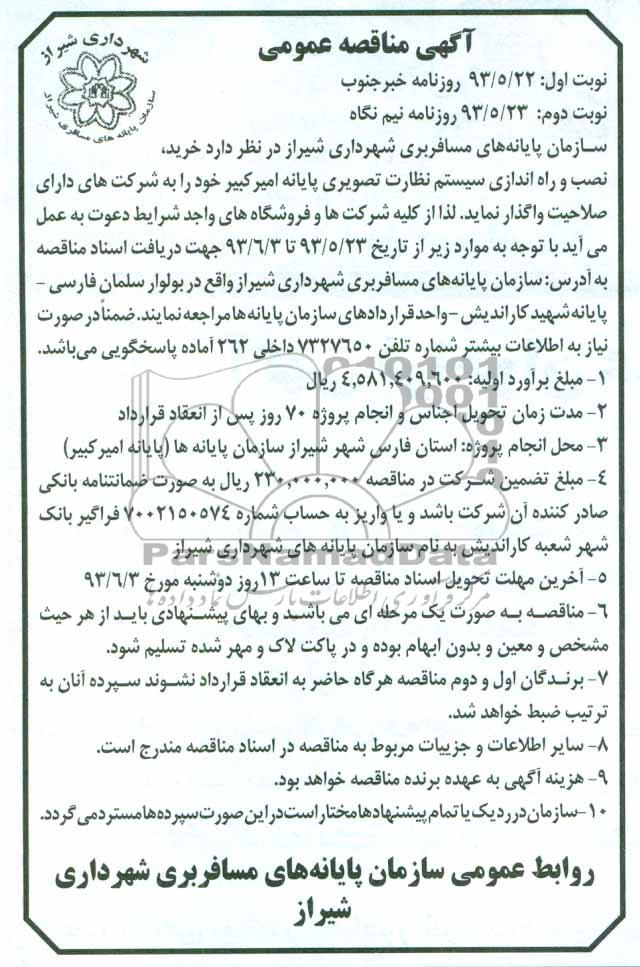 شهرداری شیراز
سازمان پایانه های مسافربری شیراز
آگهی مناقصه عمومی
نوبت اول: ۹۳/۵/۲۲ روزنامه خبرجنوب
نوبت دوم: ۹۳/۵/۲۳ روزنامه نیم نگاه
سازمان پایانه‌های مسافربری شهرداری شیراز در نظر دارد خرید،
نصب و راه اندازی سیستم نظارت تصویری پایانه امیرکبیر خود را به شرکت های دارای
صلاحیت واگذار نماید. لذا از کلیه شرکت ها و فروشگاه های واجد شرایط دعوت به عمل
می آید با توجه به موارد زیر از تاریخ ۹۳/۵/۲۳ تا ۹۳/۶/۳ جهت دریافت اسناد مناقصه
به آدرس: سازمان پایانه‌های مسافربری شهرداری شیراز واقع در بولوار سلمان فارسی -
پایانه شهید کاراندیش - واحد قراردادهای سازمان پایانه‌ها مراجعه نمایند. ضمناً در صورت
نیاز به اطلاعات بیشتر شماره تلفن ۷۳۲۷۶۵۰ داخلی ۲۶۲ آماده پاسخگویی می‌باشد.
۱- مبلغ برآورد اولیه: ۴,۵۸۱,۴۰۹,۶۰۰ ریال
۲- مدت زمان تحویل اجناس و انجام پروژه ۷۰ روز پس از انعقاد قرارداد
۳- محل انجام پروژه: استان فارس شهر شیراز سازمان پایانه ها (پایانه امیرکبیر)
۴- مبلغ تضمین شرکت در مناقصه ۲۳۰,۰۰۰,۰۰۰ ریال به صورت ضمانتنامه بانکی
صادر کننده آن شرکت باشد و یا واریز به حساب شماره ۷۰۰۲۱۵۰۵۷۴ فراگیر بانک
شهر شعبه کاراندیش به نام سازمان پایانه های شهرداری شیراز
ParsNamadData
۵- آخرین مهلت تحویل اسناد مناقصه تا ساعت ۱۳ روز دوشنبه مورخ ۹۳/۶/۳
مرکز فرآوری اطلاعات پارس نماد داده ها
۶- مناقصه به صورت یک مرحله ای می باشد و بهای پیشنهادی باید از هر حیث
مشخص و معین و بدون ابهام بوده و در پاکت لاک و مهر شده تسلیم شود.
۷- برندگان اول و دوم مناقصه هرگاه حاضر به انعقاد قرارداد نشوند سپرده آنان به
ترتیب ضبط خواهد شد.
۸- سایر اطلاعات و جزییات مربوط به مناقصه در اسناد مناقصه مندرج است.
۹- هزینه آگهی به عهده برنده مناقصه خواهد بود.
۱۰- سازمان در رد یک یا تمام پیشنهادها مختار است در این صورت سپرده‌ها مسترد می گردد.
روابط عمومی سازمان پایانه‌های مسافربری شهرداری
شیراز